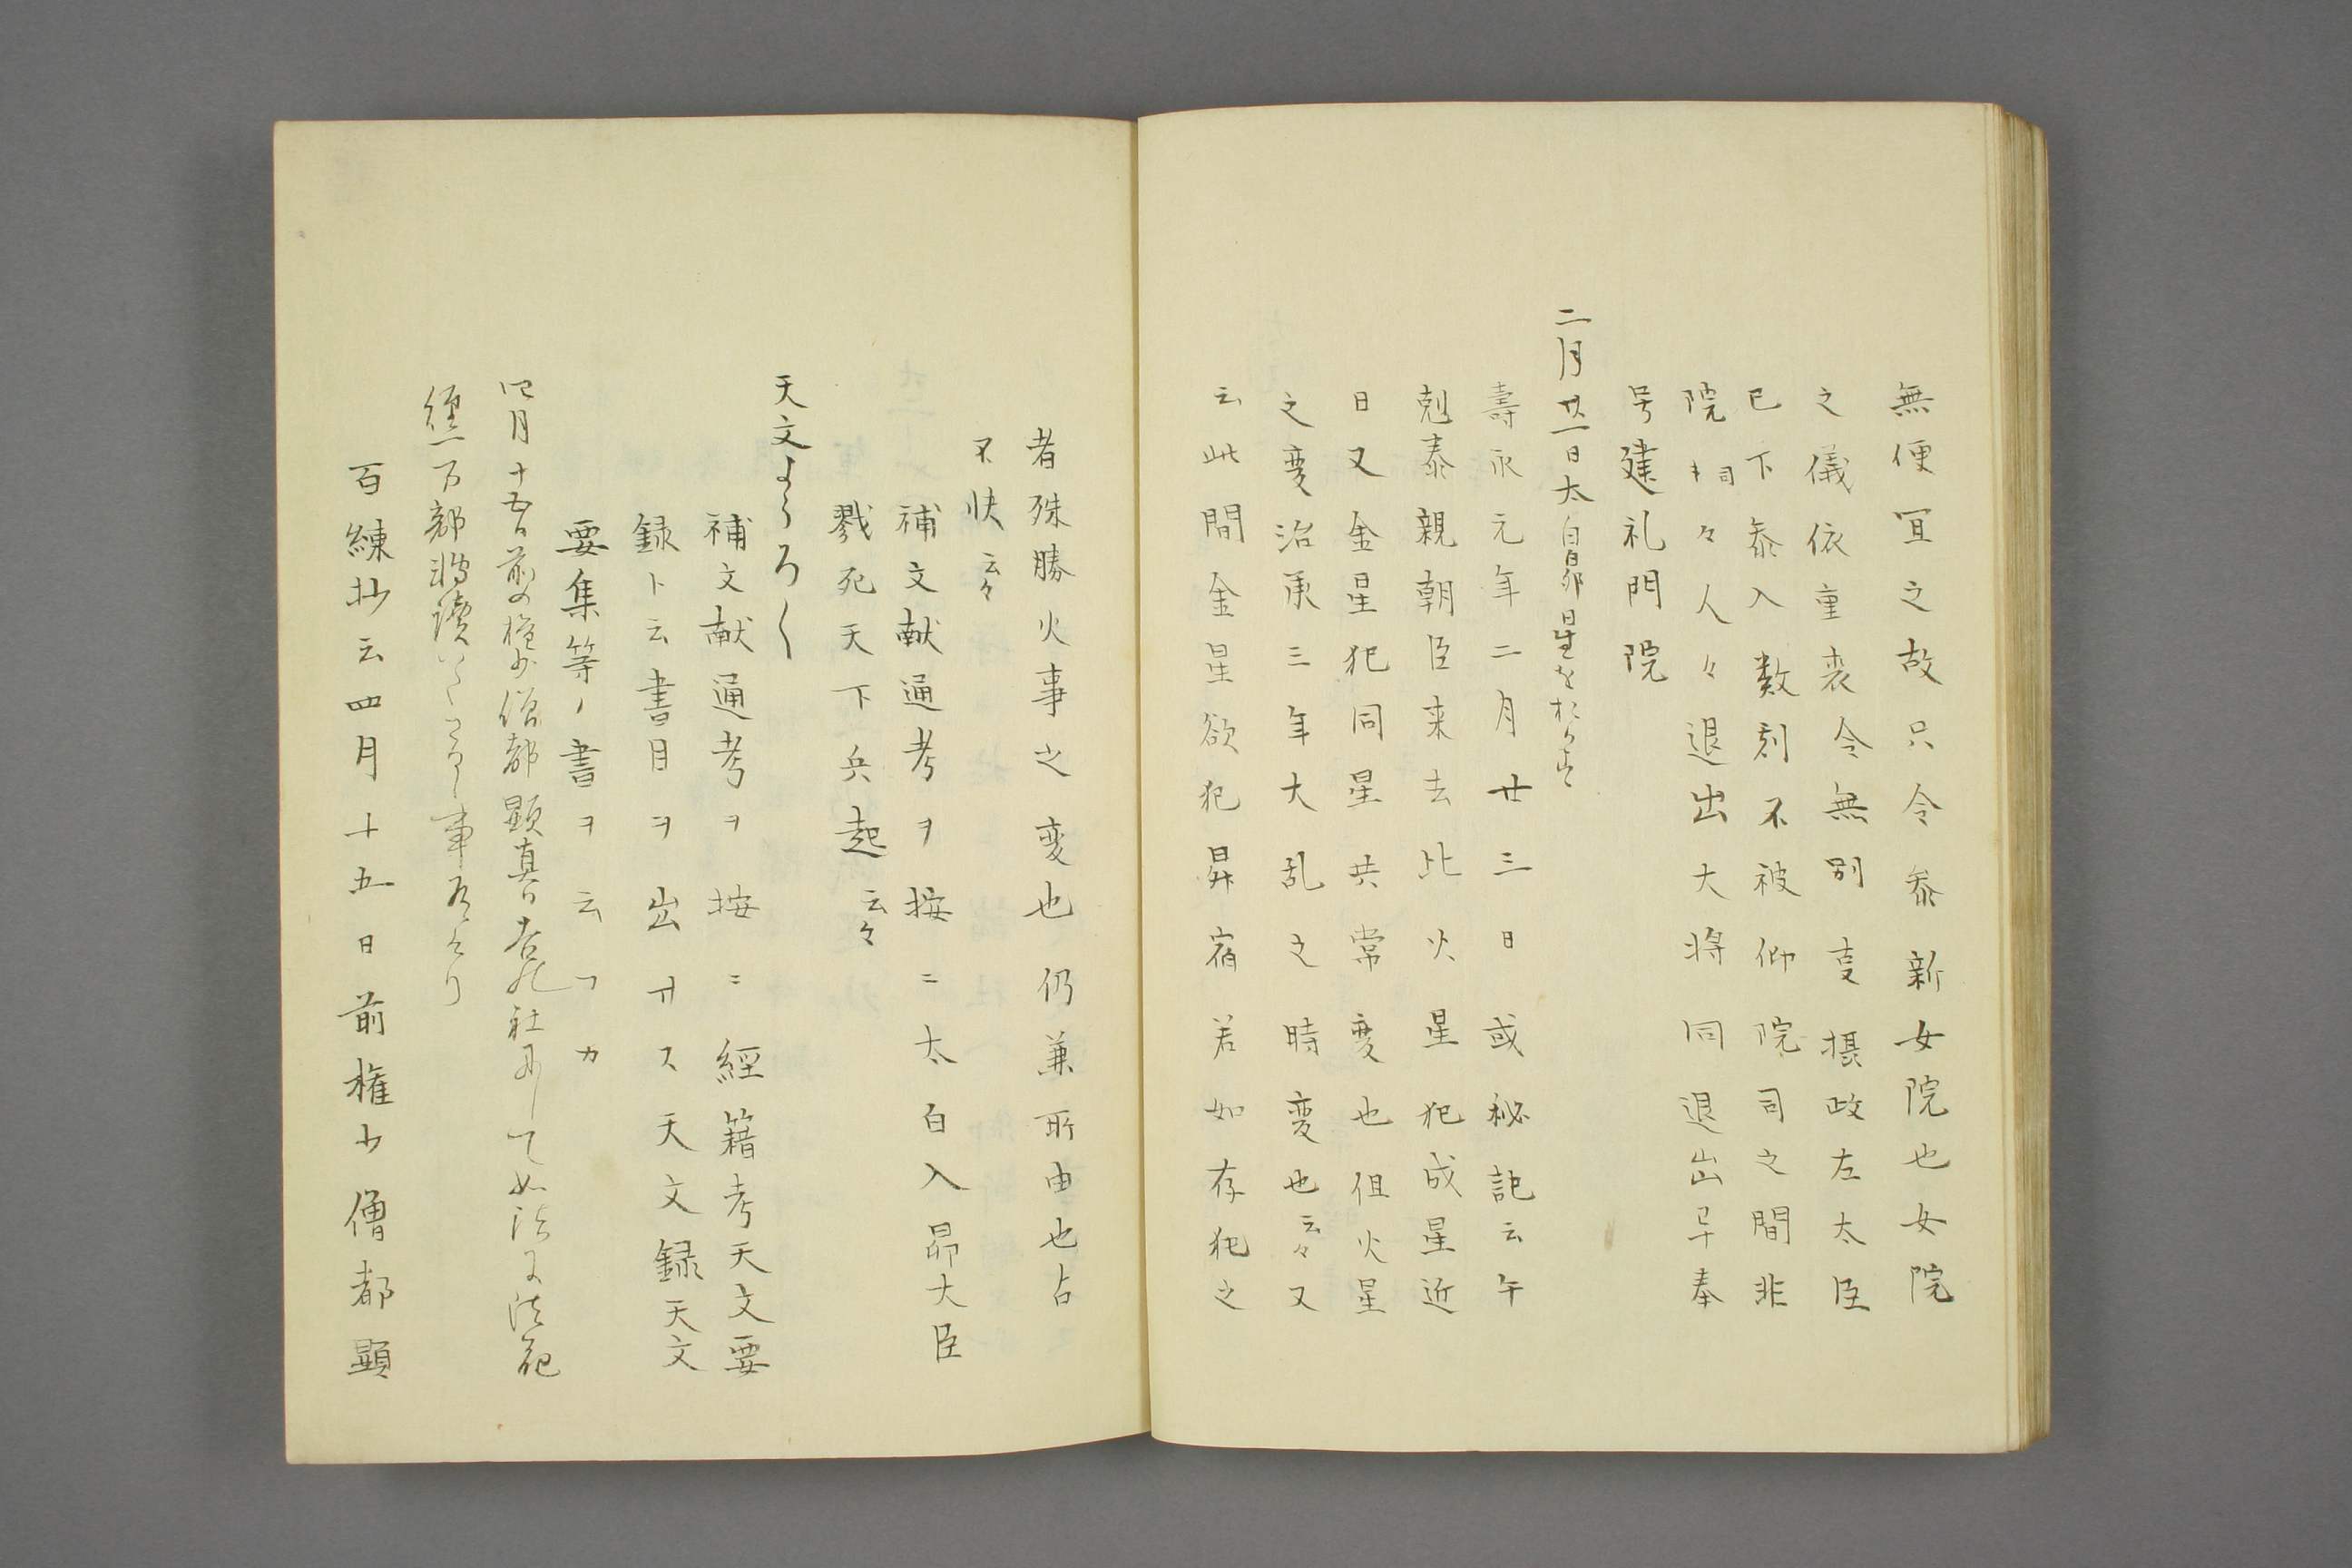 無便宜之故只令参新女院也女院
之儀依重喪令無別事摂政左大臣
已下参入数刻不被仰院司之間非
院司々人々退出大将同退出早奉
号建礼門院
二月廿一日太白昴星を
壽永元年二月廿三日或秘記云午
剋泰親朝臣来去比火星犯成星近
日又金星犯同星共常変也但火星
之変治承三年大乱之時変也云々又
云此間金星欲犯昴宿若如存犯之
者殊勝火事之変也仍兼所由也占
不快云々
補文献通考ヲ按ニ太白入昴大臣
戮死天下兵起云々
天文ようろく
補文献通考ヲ按ニ経籍考天文要
録ト云書目ヲ出ス天文録天文
要集等ノ書ヲ云フカ
四月十五日前の権少僧都顕真日吉の社にして如法に法花
経一万部転読
百練抄云四月十五日前権少僧都顕